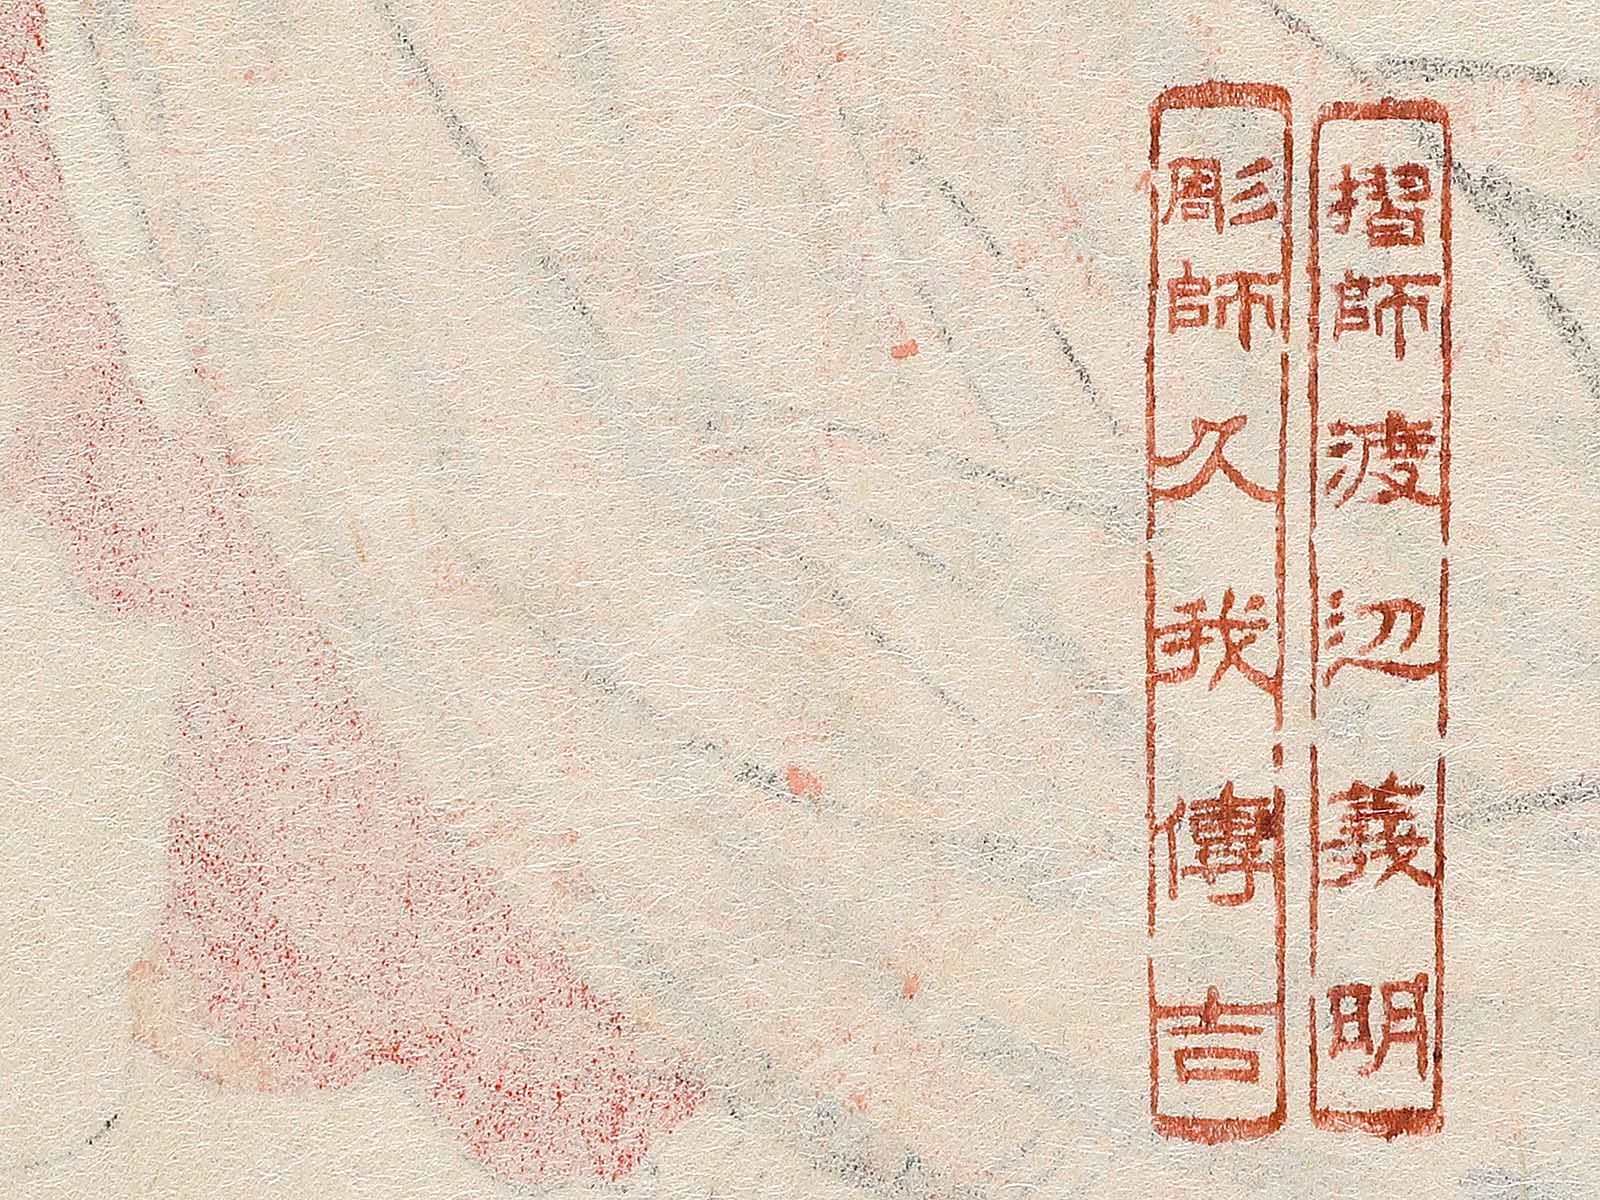 摺師渡辺義明
彫師久我傳吉